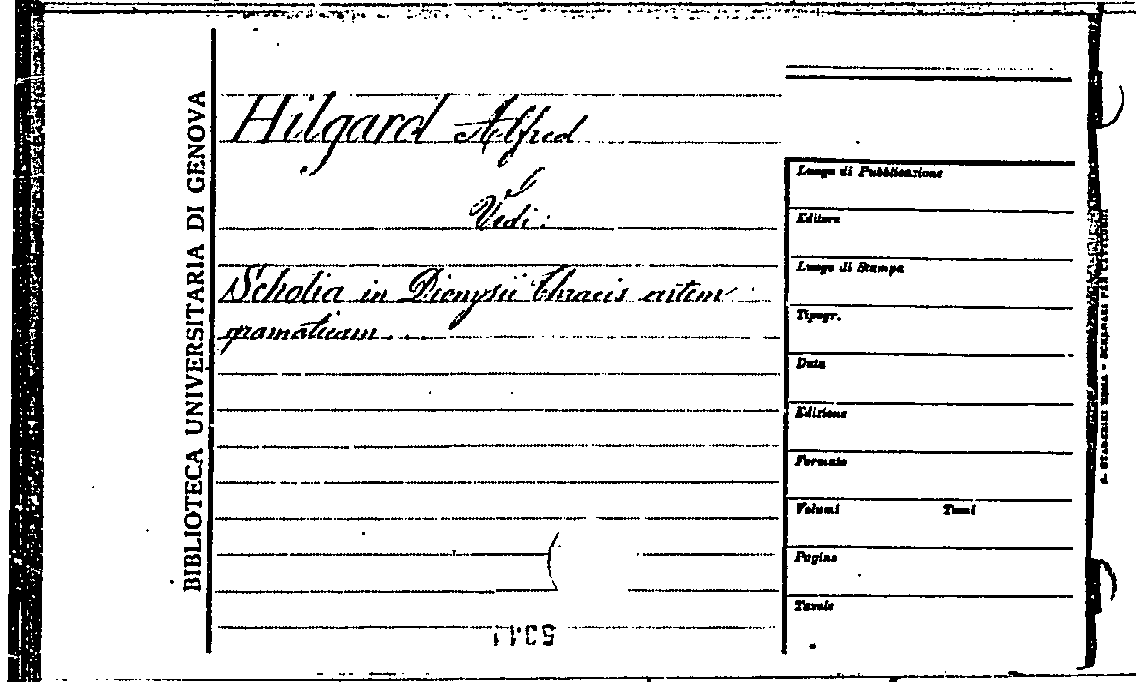 BIBLIOTECA UNIVERSITARIA DI GENOVA
Hilgard Alfred
Vedi:
Scholia in Dionysii Thracis artem
gramaticam
Luogo di Pubblicazione
Editore
Luogo di Stampa
Tipogr.
Data
Edizione
Formato
Volumi Tomi
Pagine
Tavole